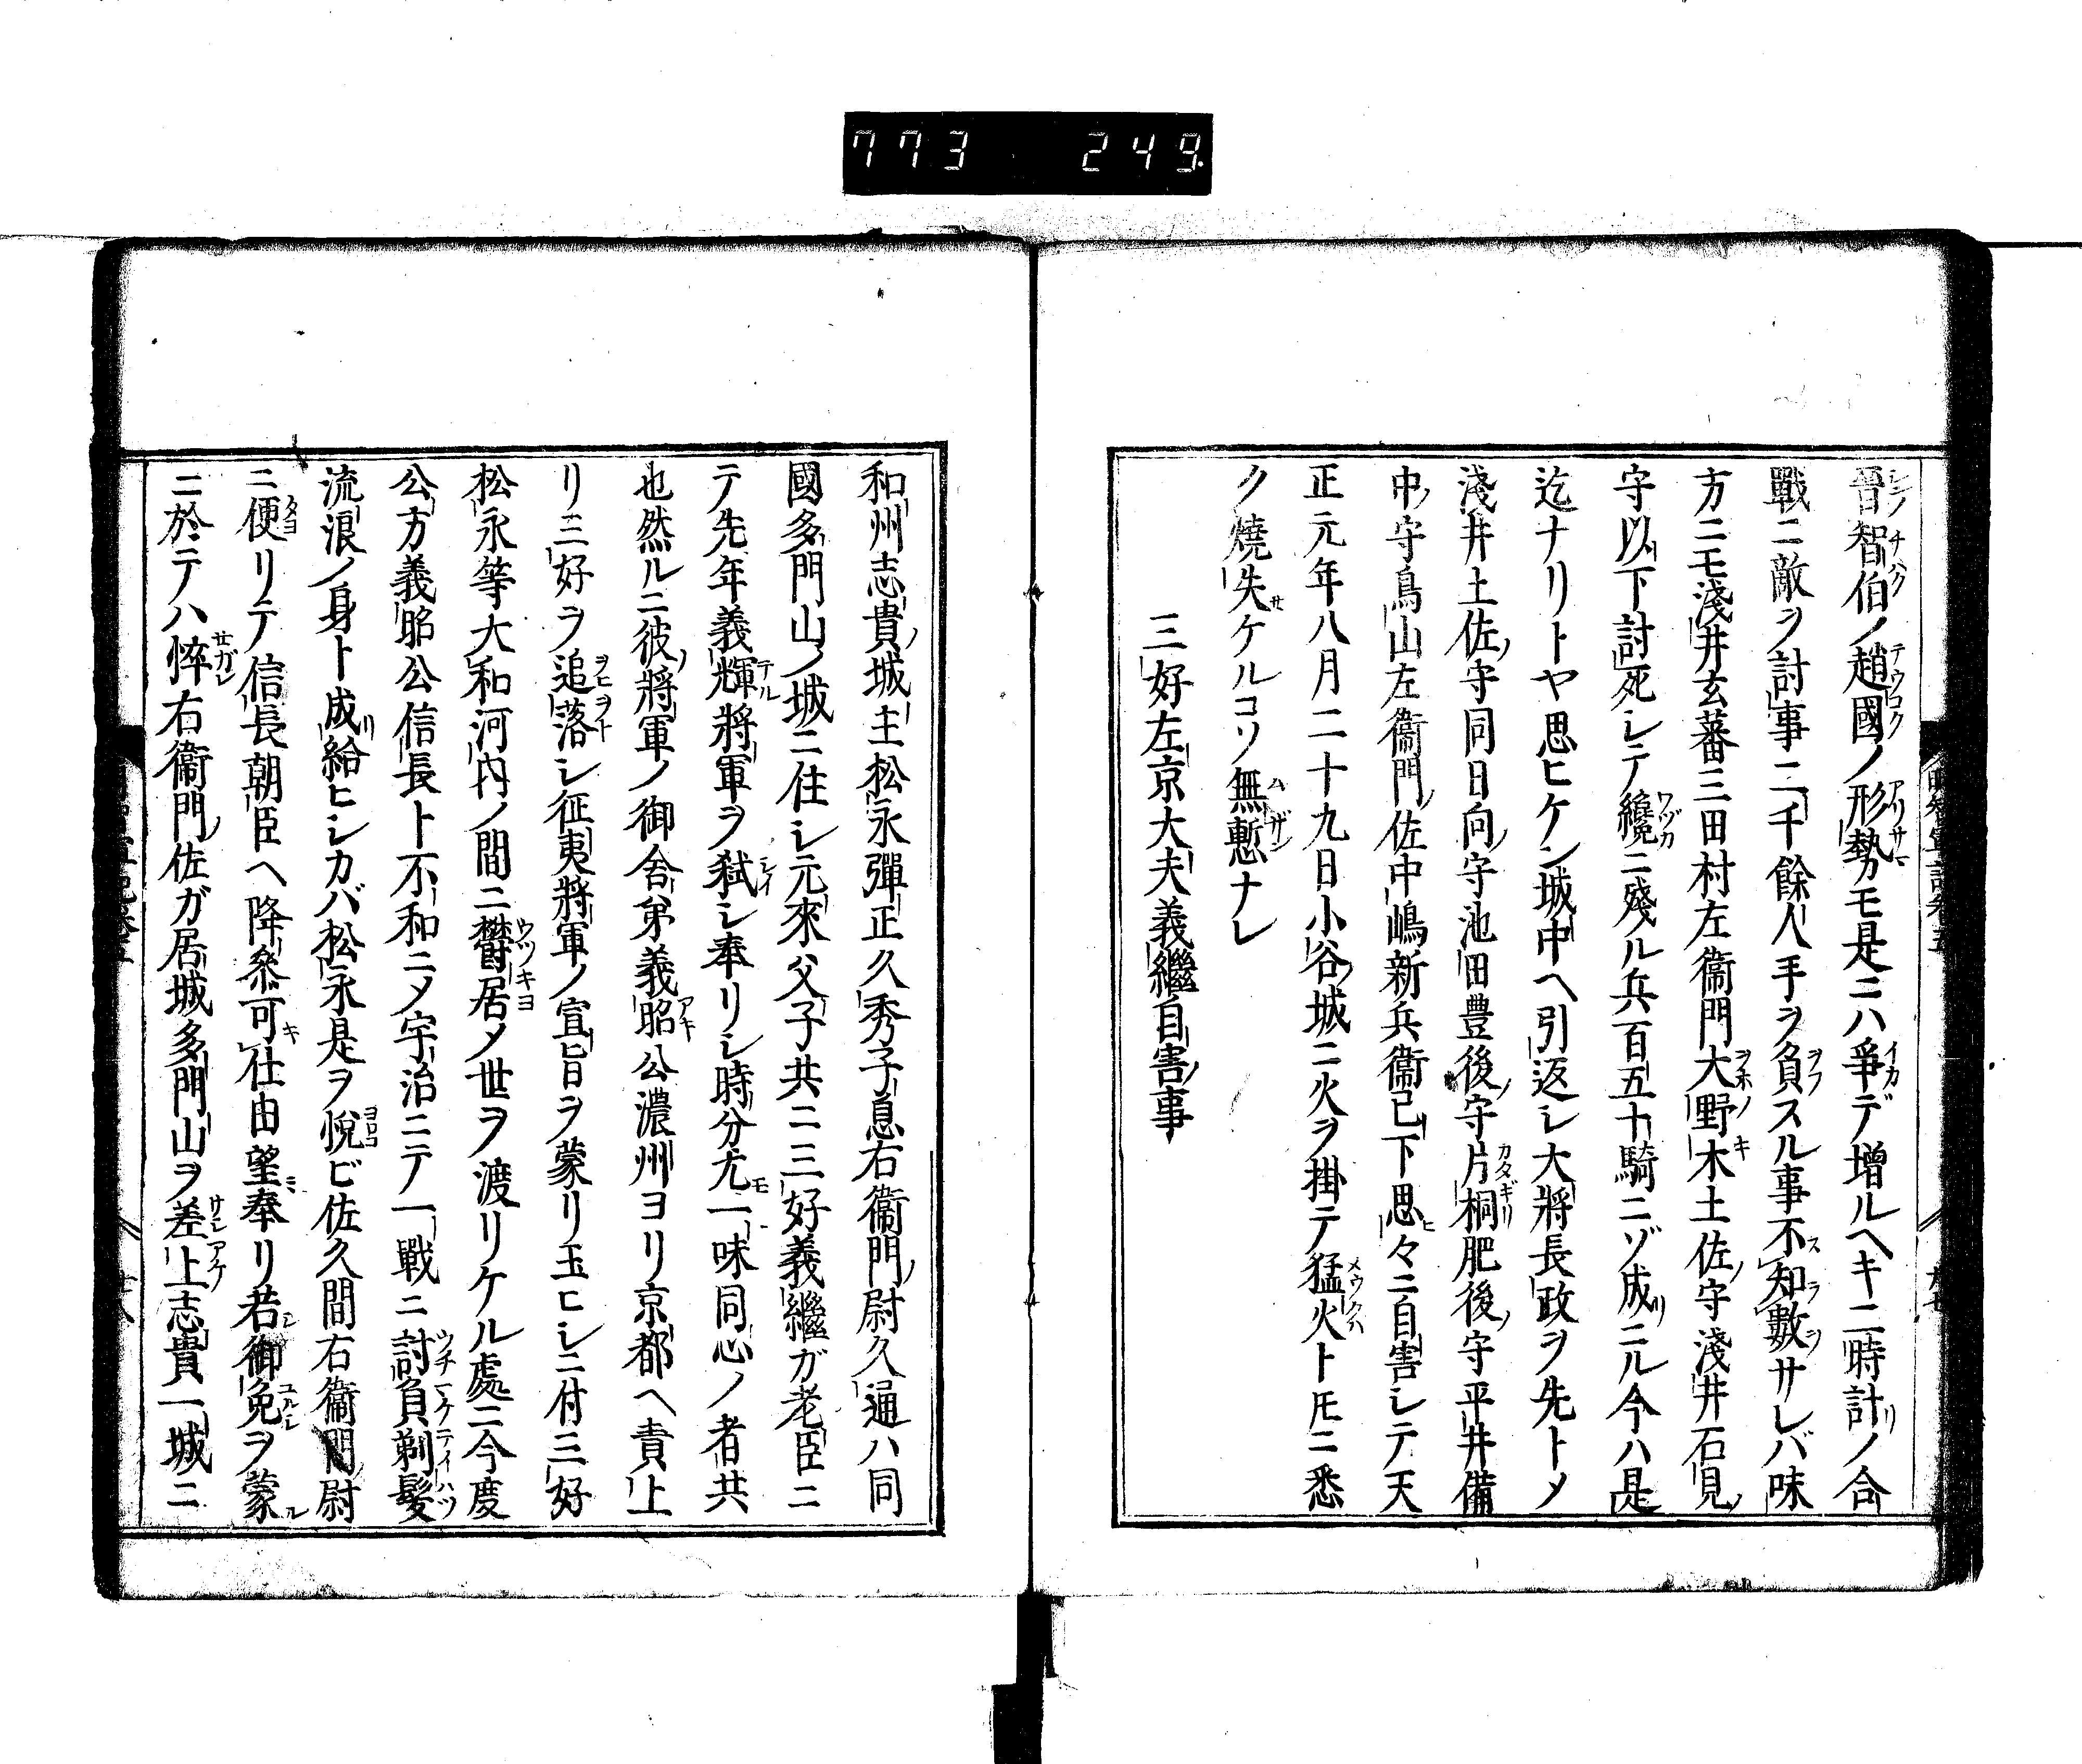 773 249
晉智伯ノ趙國ノ形勢モ是ニハ爭デ増ルヘキ二時計ノ合
戰ニ敵ヲ討事二千餘人手ヲ負スル事不知數サレバ味
方ニモ淺井玄蕃三田村左衞門大野木土佐守淺井石見
守以下討死シテ纔ニ殘ル兵百五十騎ニゾ成ニル今ハ是
迄ナリトヤ思ヒケン城中ヘ引返シ大將長政ヲ先トメ
淺井土佐守同日向守池田豊後守片桐肥後守平井備
中守鳥山左衞門佐中嶋新兵衞已下思々ニ自害シテ天
正元年八月二十九日小谷城ニ火ヲ掛テ猛火ト圧ニ悉
ク燒失ケルコソ無慙ナレ
三好左京大夫義繼自害事
和州志貴城主松永彈正久秀子息右衞門尉久通ハ同
國多門山ノ城ニ住シ元來父子共ニ三好義繼ガ老臣ニ
テ先年義輝將軍ヲ弑シ奉リシ時分尤一味同心ノ者共
也然ルニ彼將軍ノ御舎弟義昭公濃州ヨリ京都ヘ責上
リ三好ヲ追落シ征夷將軍ノ宣旨ヲ蒙リ玉ヒシニ付三好
松永等大和河内ノ間ニ欝居メ世ヲ渡リケル處ニ今度
公方義昭公信長ト不和ニメ宇治ニテ一戰ニ討負剃髮
流浪ノ身ト成給ヒシカバ松永是ヲ悅ビ佐久間右衞門尉
ニ便リテ信長朝臣ヘ降參可仕由望奉リ若御免ヲ蒙
ニ於テハ悴右衞門佐ガ居城多門山ヲ差上志貴一城ニ